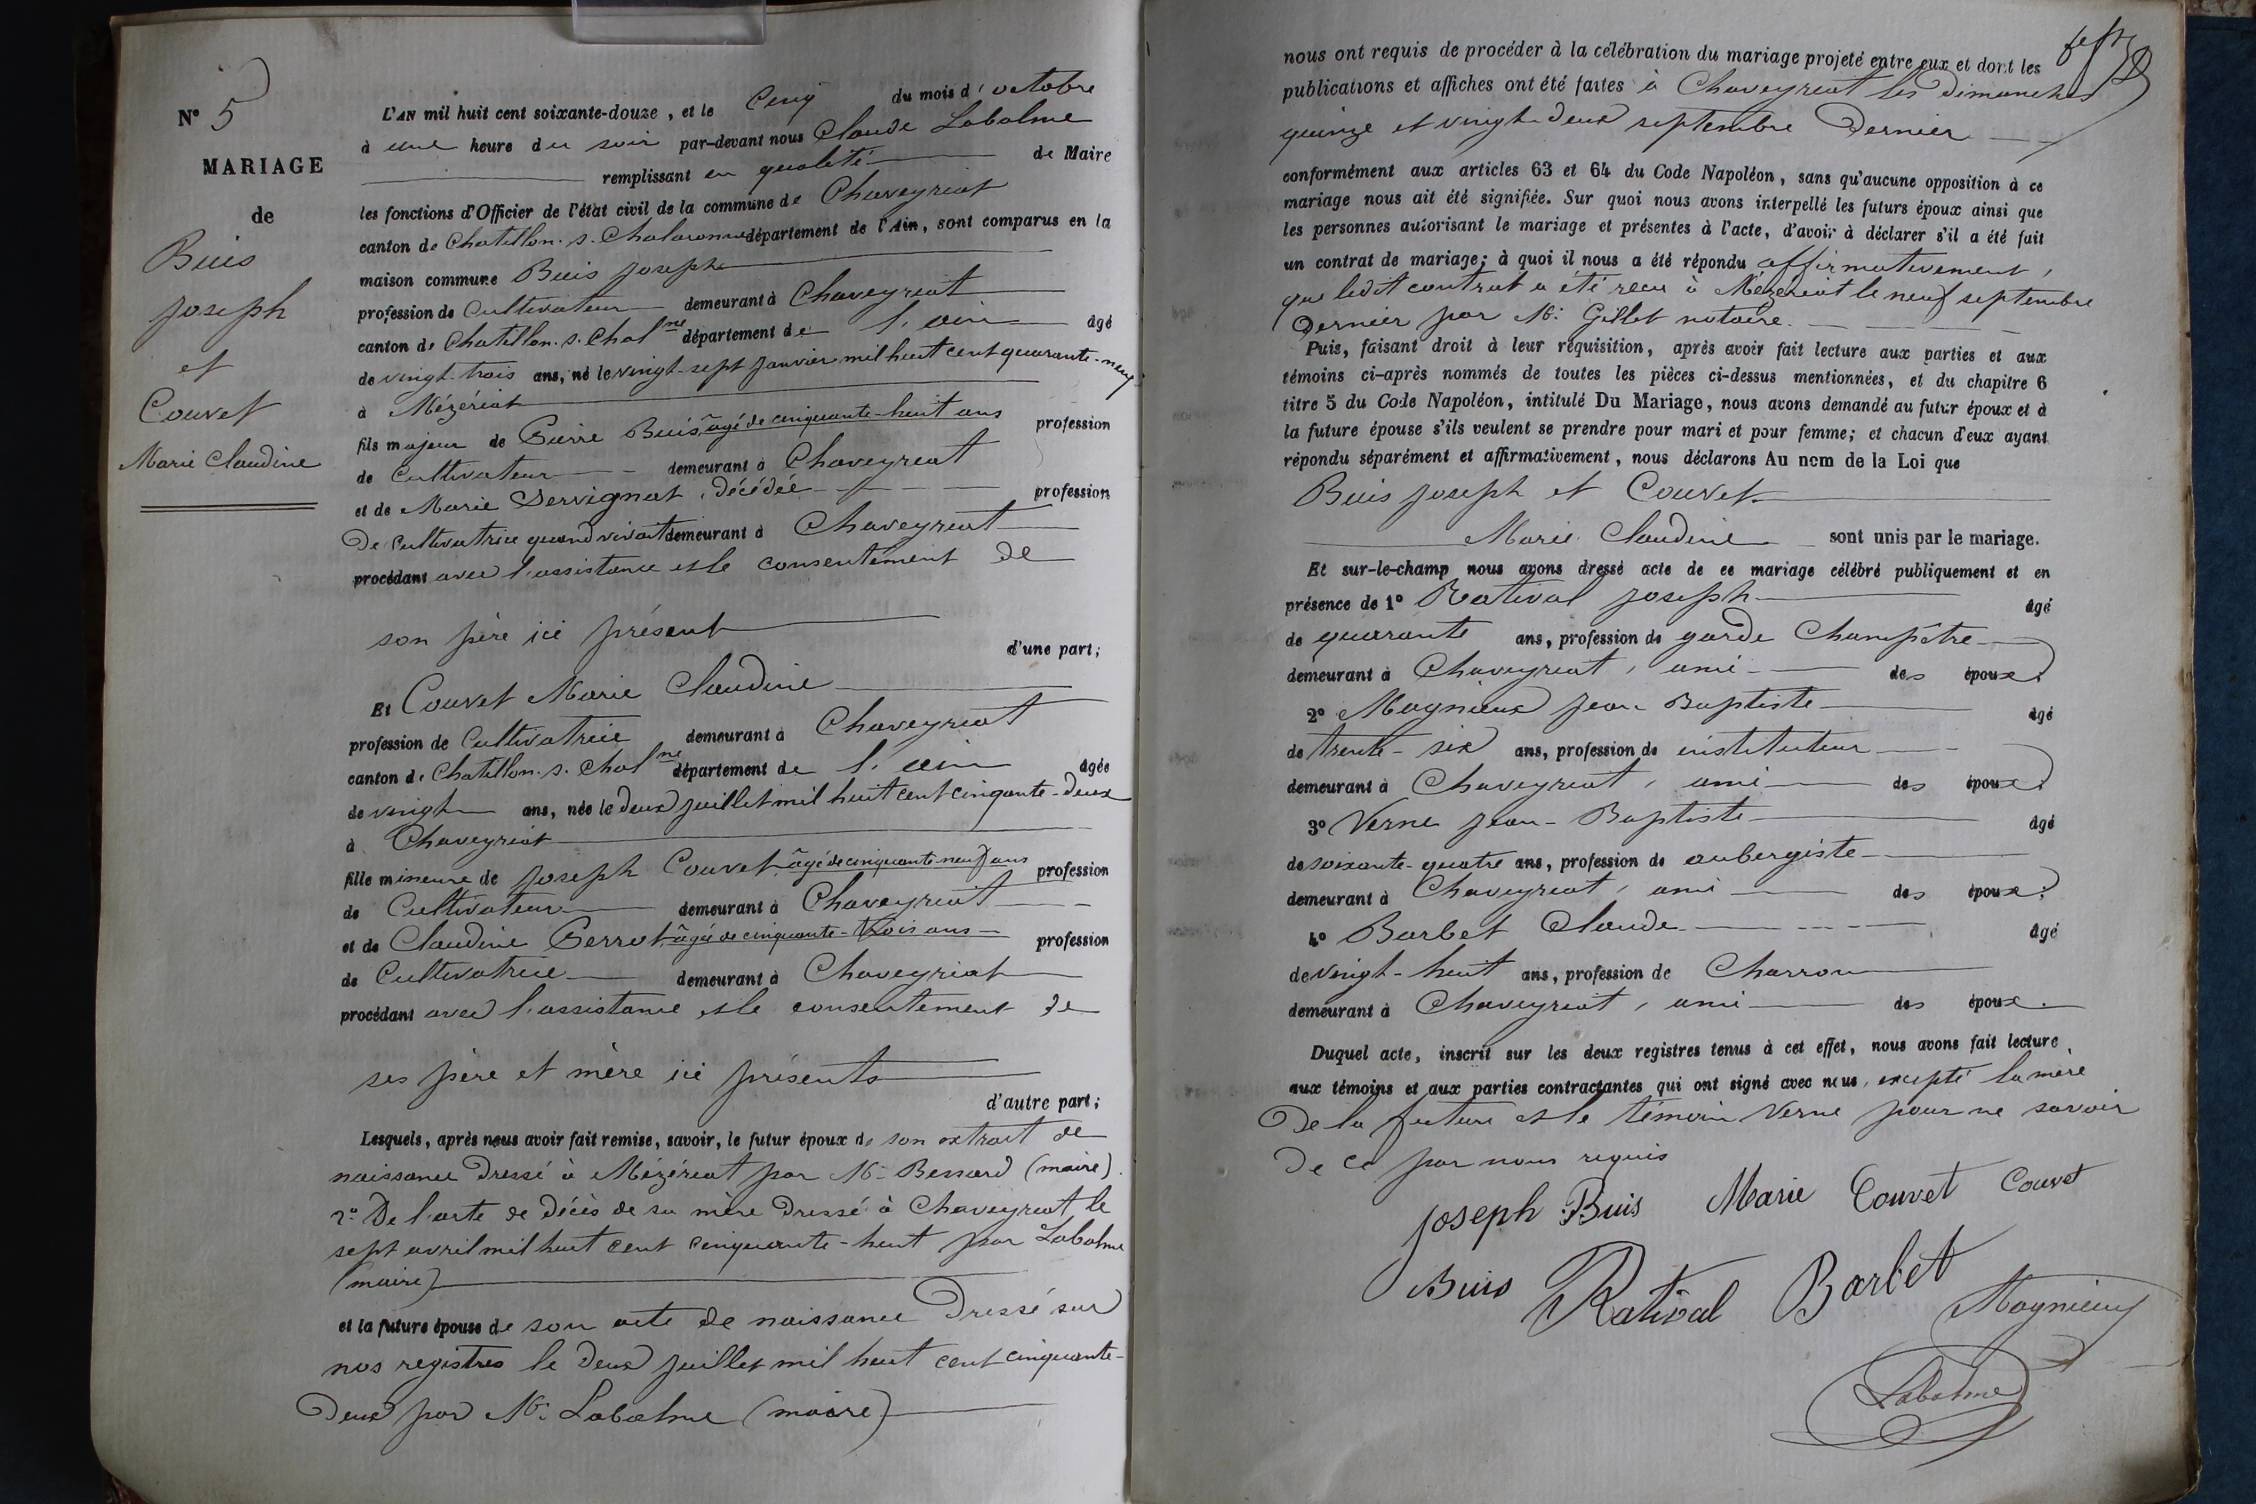 N° 5
MARIAGE
de
Buis
Joseph
et
Couvet
Marie Claudine
L'AN mil huit cent soixante-douze, et le Cinq du mois d'octobre
à une heure du soir par-devant nous Claude Labalme
remplissant en qualité de Maire
les fonctions d'Officier de l'état civil de la commune de Chaveyriat
canton de Chatillon-s-Chalaronne département de l'Ain, sont comparus en la
maison commune Buis Joseph
profession de Cultivateur demeurant à Chaveyriat
canton de Chatillon-s-Chalne département de l'ain âgé
de vingt-trois ans, né le vingt-sept janvier mil huit cent quarante-neuf
à Mézériat
fils majeur de Pierre Buis, âgé de cinquante-huit ans profession
de Cultivateur demeurant à Chaveyriat
et de Marie Servignat, décédée profession
De Cultivatrice quand vivait demeurant à Chaveyriat
procédant avec l'assistance et le consentement de
son père ici présent
d'une part;
Et Couvet Marie Claudine
profession de Cultivatrice demeurant à Chaveyriat
canton de Chatillon-s-Chalne département de l'ain âgée
de vingt ans, née le Deux juillet mil huit cent cinquante-deux
à Chaveyriat
fille mineure de Joseph Couvet, âgé de cinquante-neuf ans profession
de Cultivateur demeurant à Chaveyriat
et de Claudine Perret, âgée de cinquante-trois ans profession
de Cultivatrice demeurant à Chaveyriat
procédant avec l'assistance et le consentement de
ses père et mère ici présents
d'autre part;
Lesquels, après nous avoir fait remise, savoir, le futur époux de son extrait de
naissance Dressé à Mézériat par Mr Bessard (maire).
2° De l'acte de décès de sa mère Dressé à Chaveyriat le
sept avril mil huit cent cinquante-huit par Labalme
(maire)
et la future épouse de son acte de naissance Dressé sur
nos registres le Deux juillet mil huit cent cinquante-
Deux par Mr Labalme (maire)
nous ont requis de procéder à la célébration du mariage projeté entre eux et dont les
publications et affiches ont été faites à Chaveyriat les dimanches
quinze et vingt-deux septembre Dernier
conformément aux articles 63 et 64 du Code Napoléon, sans qu'aucune opposition à ce
mariage nous ait été signifiée. Sur quoi nous avons interpellé les futurs époux ainsi que
les personnes autorisant le mariage et présentes à l'acte, d'avoir à déclarer s'il a été fait
un contrat de mariage; à quoi il nous a été répondu affirmativement,
que ledit contrat a été reçu à Mézériat le neuf septembre
Dernier par Mr Gillet notaire.
Puis, faisant droit à leur réquisition, après avoir fait lecture aux parties et aux
témoins ci-après nommés de toutes les pièces ci-dessus mentionnées, et du chapitre 6
titre 5 du Code Napoléon, intitulé Du Mariage, nous avons demandé au futur époux et à
la future épouse s'ils veulent se prendre pour mari et pour femme; et chacun d'eux ayant
répondu séparément et affirmativement, nous déclarons Au nom de la Loi que
Buis Joseph et Couvet
Marie Claudine sont unis par le mariage.
Et sur-le-champ nous avons dressé acte de ce mariage célébré publiquement et en
présence de 1° Ratival Joseph âgé
de quarante ans, profession de garde Champêtre
demeurant à Chaveyriat, ami des époux.
2° Magnieux Jean Baptiste âgé
de trente-six ans, profession de instituteur
demeurant à Chaveyriat, ami des époux.
3° Verne Jean-Baptiste âgé
de soixante-quatre ans, profession de aubergiste
demeurant à Chaveyriat, ami des époux.
4° Barbet Claude âgé
de vingt-huit ans, profession de Charron
demeurant à Chaveyriat, ami des époux.
Duquel acte, inscrit sur les deux registres tenus à cet effet, nous avons fait lecture
aux témoins et aux parties contractantes qui ont signé avec nous, excepté la mère
De la future et le témoin Verne pour ne savoir
De ce par nous requis
Joseph Buis Marie Couvet Couvet
Buis Ratival Barbet
Magnieux
Labalme